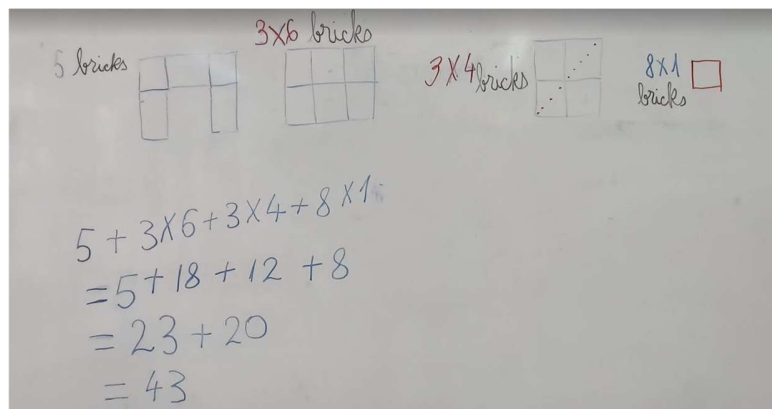 5 bricks
3x6 bricks
3x4 bricks
8x1
bricks
5 + 3x6 + 3x4 + 8x1
= 5 + 18 + 12 + 8
= 23 + 20
= 43